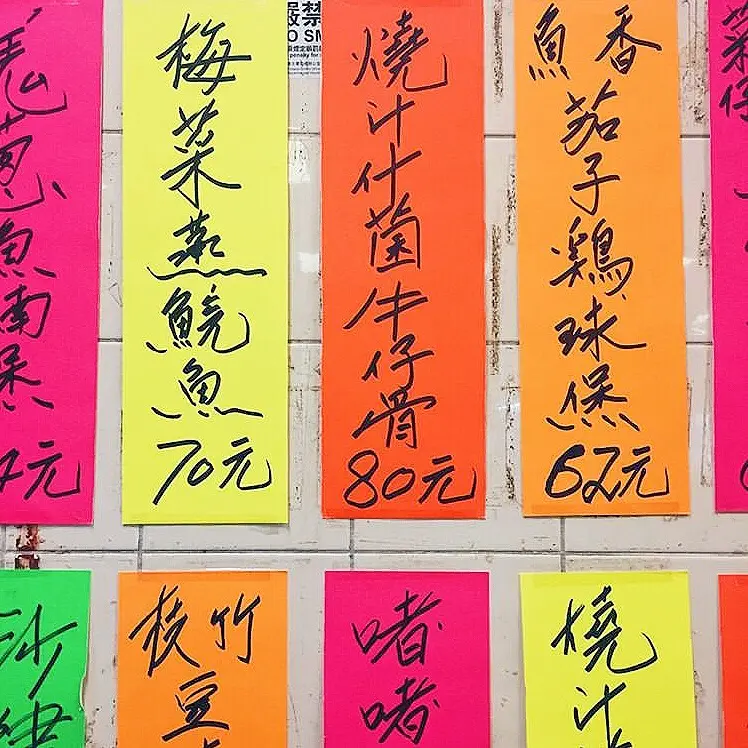 禁
羌葱魚腩煲
元
梅菜蒸鯇魚
70元
燒汁什菌牛仔骨
80元
魚香茄子鷄球煲
62元
沙
枝竹豆
啫啫
燒汁